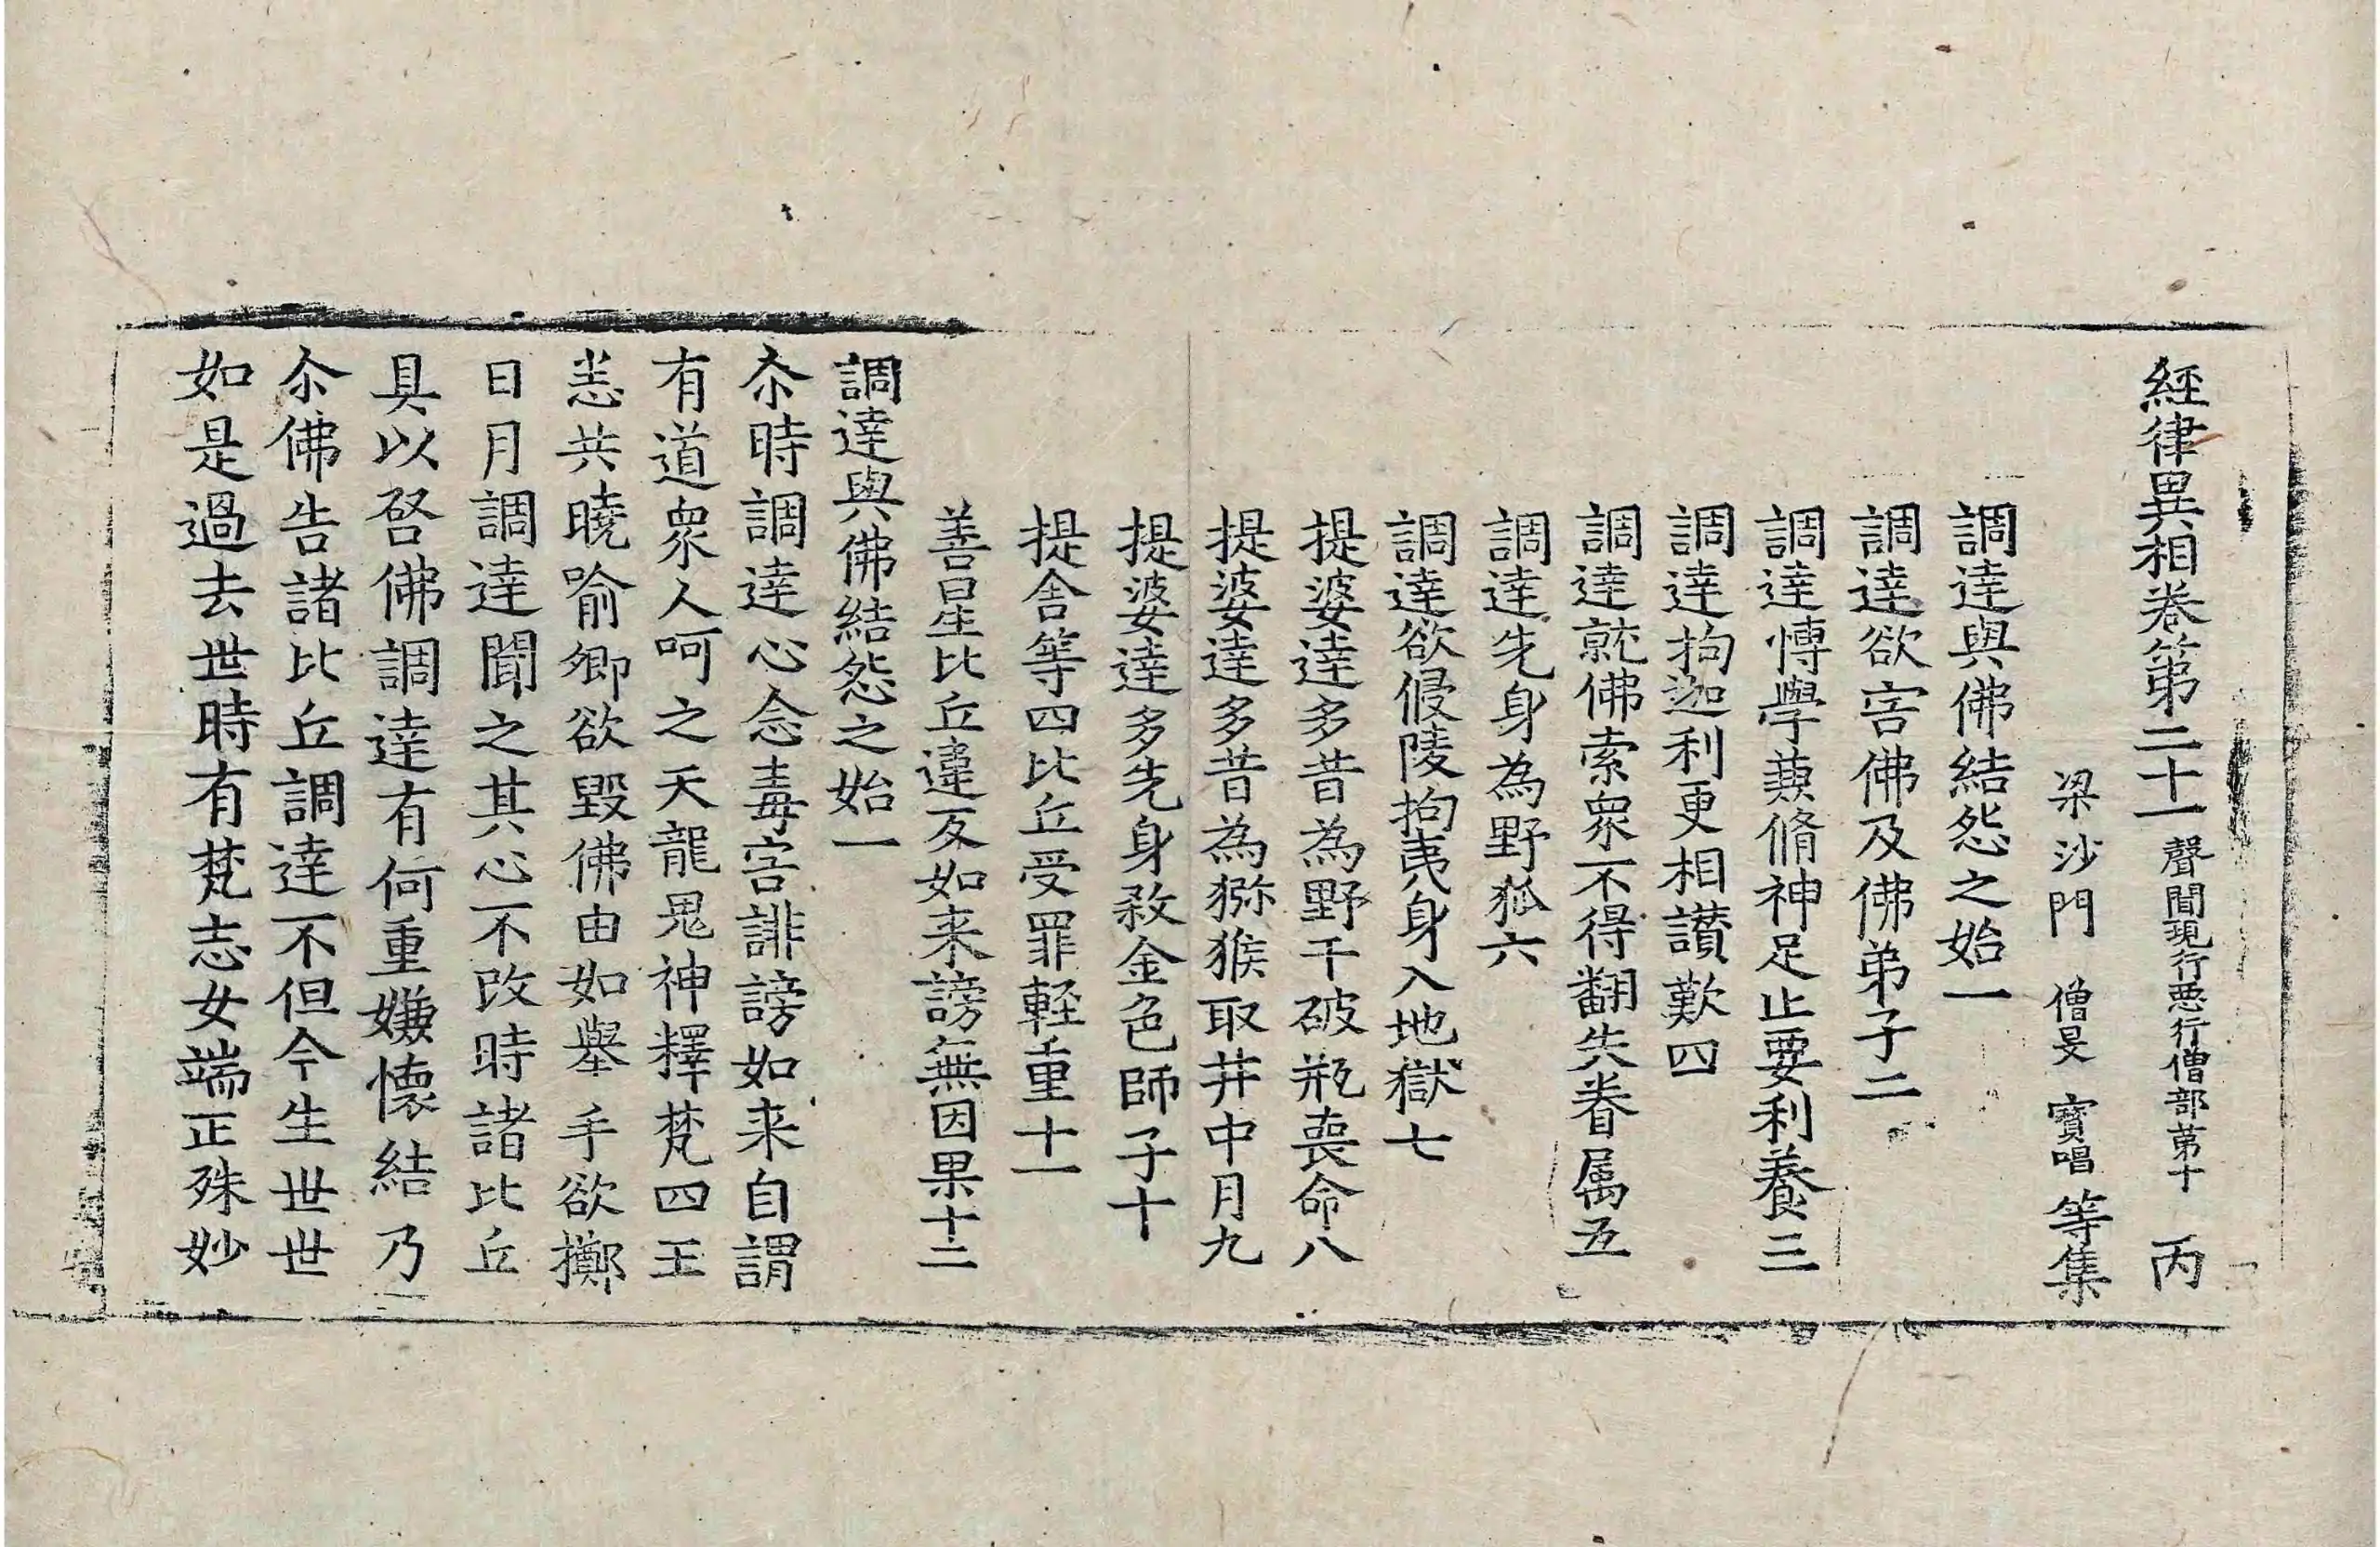 經律異相卷第二十一聲聞現行惡行僧部第十 丙
梁沙門 僧旻 寶唱 等集
調達與佛結怨之始一
調達欲害佛及佛弟子二
調達博學兼脩神足止要利養三
調達拘迦利更相讃歎四
調達就佛索衆不得翻失眷属五
調達先身為野狐六
調達欲侵陵拘夷身入地獄七
提婆達多昔為野干破瓶喪命八
提婆達多昔為猕猴取井中月九
提婆達多先身殺金色師子十
提舎等四比丘受罪軽重十一
善星比丘違反如来謗無因果十二
調達與佛結怨之始一
尒時調達心念毒害誹謗如来自謂
有道衆人呵之天龍鬼神釋梵四王
悉共曉喻卿欲毀佛由如舉手欲擲
日月調達聞之其心不改時諸比丘
具以啓佛調達有何重嫌懐結乃
尒佛告諸比丘調達不但今生世世
如是過去世時有梵志女端正殊妙